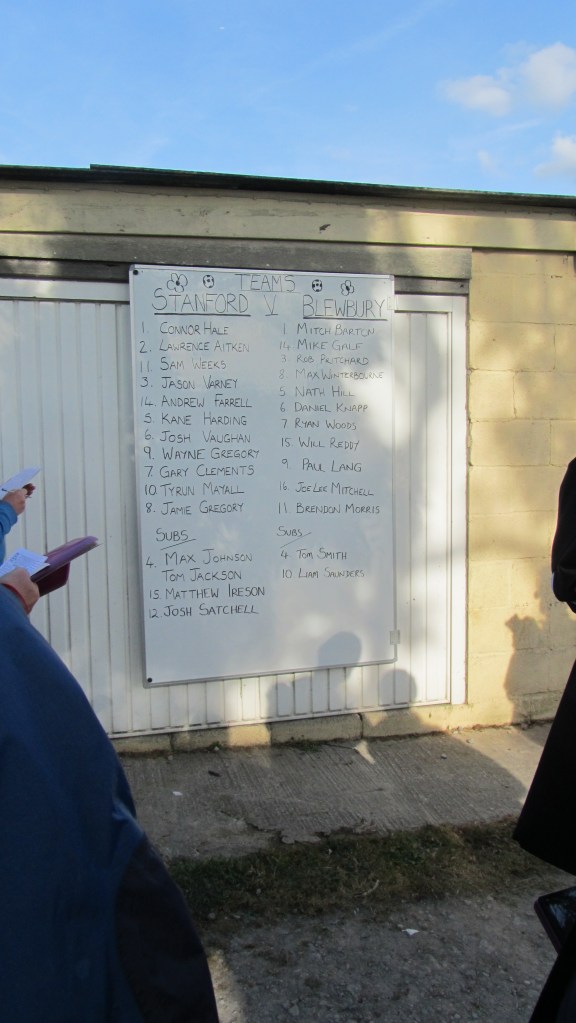 TEAMS
STANFORD V BLEWBURY
1. CONNOR HALE
2. LAWRENCE AITKEN
11. SAM WEEKS
3. JASON VARNEY
14. ANDREW FARRELL
5. KANE HARDING
6. JOSH VAUGHAN
9. WAYNE GREGORY
7. GARY CLEMENTS
10. TYRUN MAYALL
8. JAMIE GREGORY
SUBS
4. MAX JOHNSON
TOM JACKSON
15. MATTHEW IRESON
12. JOSH SATCHELL
1 MITCH BARTON
14. MIKE GALE
3 ROB PRITCHARD
8 MAX WINTERBOURNE
5 NATH HILL
6 DANIEL KNAPP
7 RYAN WOODS
15 WILL REDDY
9 PAUL LANG
16 JOE LEE MITCHELL
11 BRENDON MORRIS
SUBS
4 TOM SMITH
10 LIAM SAUNDERS